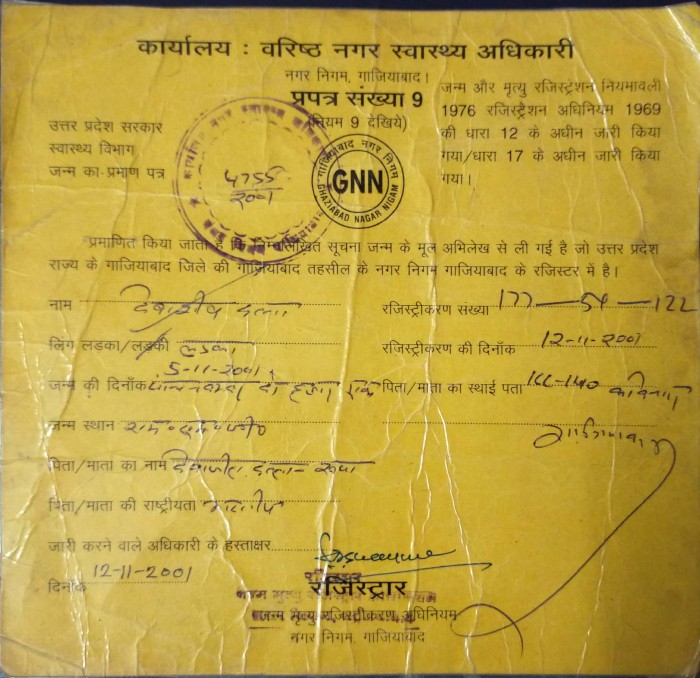 कार्यालय : वरिष्ठ नगर स्वास्थ्य अधिकारी
नगर निगम, गाजियाबाद।
प्रपत्र संख्या 9
(नियम 9 देखिये)
उत्तर प्रदेश सरकार
स्वास्थ्य विभाग
जन्म का प्रभाण पत्र
जन्म और मृत्यु रजिस्ट्रेशन नियमावली
1976 रजिस्ट्रैशन अधिनियम 1969
की धारा 12 के अधीन जारी किया
गया/धारा 17 के अधीन जारी किया
गया।
4755
2001
गाजियाबाद नगर निगम
GNN
GHAZIABAD NAGAR NIGAM
प्रमाणित किया जाता है कि निम्नलिखित सूचना जन्म के मूल अभिलेख से ली गई है जो उत्तर प्रदेश
राज्य के गाजियाबाद जिले की गाजियाबाद तहसील के नगर निगम गाजियाबाद के रजिस्टर में है।
नाम
रजिस्ट्रीकरण संख्या 177-54-122
लिंग लडका/लडकी लडका
रजिस्ट्रीकरण की दिनाँक 12-11-2001
5-11-2001
जन्म की दिनाँक पांच नवम्बर दो हजार एक
पिता/माता का स्थाई पता
जन्म स्थान
गाजियाबाद
पिता/माता का नाम
पिता/माता की राष्ट्रीयता भारतीय
जारी करने वाले अधिकारी के हस्ताक्षर
दिनाँक 12-11-2001
रजिस्ट्रार
जन्म मृत्यु रजिस्ट्रीकरण अधिनियम
नगर निगम, गाजियाबाद